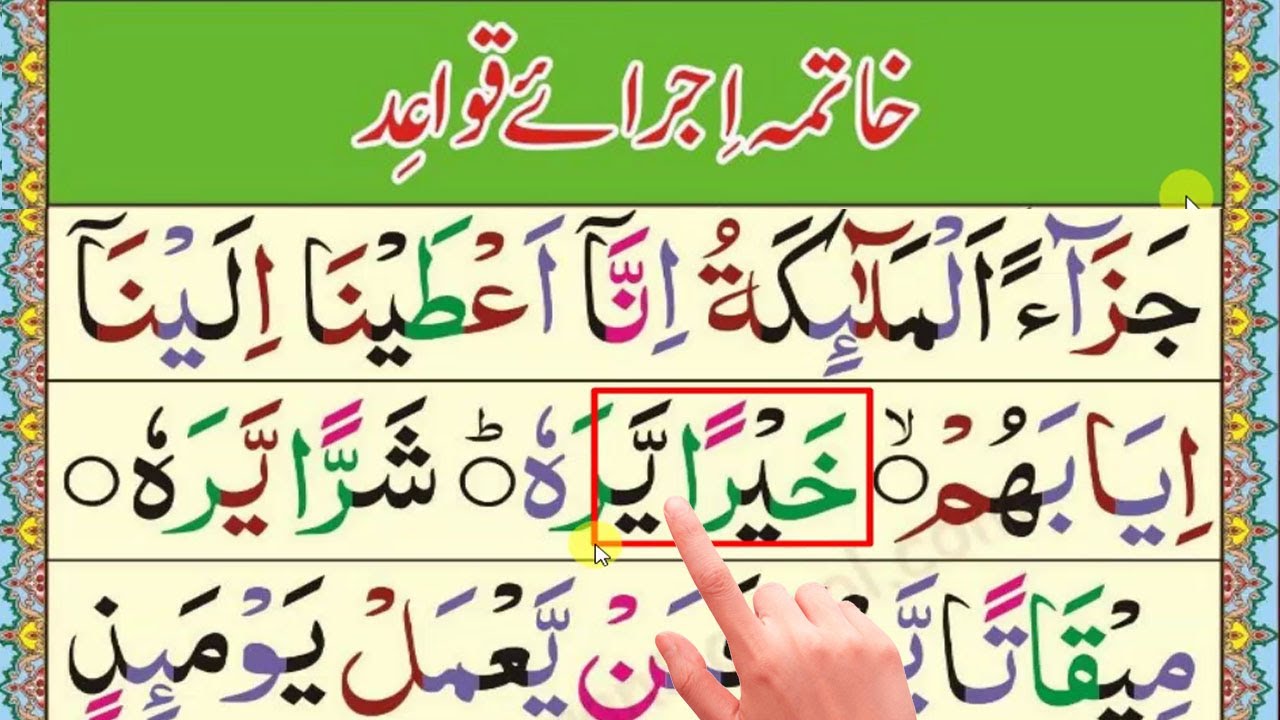 خاتمہ اِجرائے قواعدِ
جَزَآءً اَلْمَلٰٓئِكَةُ اِنَّآ اَعْطَيْنَا اِلَيْنَآ
اِيَابَهُمْ ۙ خَيْرًا يَّرَهٗ ؕ شَرًّا يَّرَهٗ
مِيْقَاتًا فَمَنْ يَّعْمَلْ يَوْمَئِذٍ